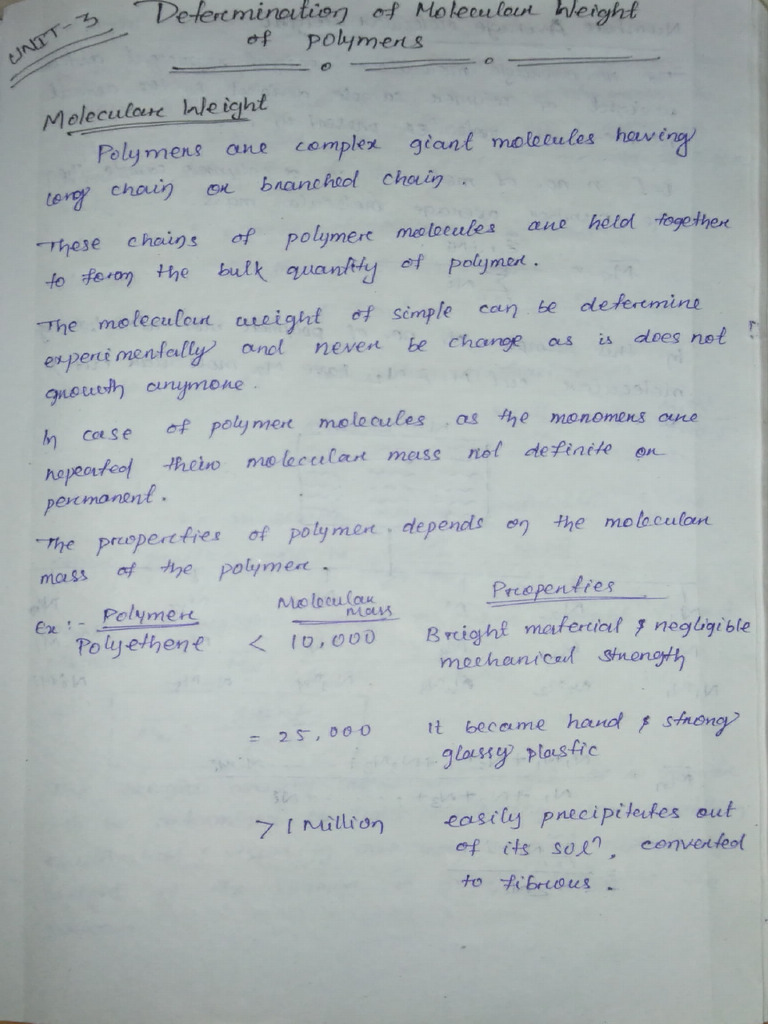 UNIT-3
Determination of Molecular Weight
of polymers
Molecular Weight
Polymers are complex giant molecules having
long chain or branched chain
These chains of polymer molecules are held together
to form the bulk quantity of polymer.
The molecular weight of simple can be determine
experimentally and never be change as is does not
growth anymore.
In case of polymer molecules as the monomers are
repeated their molecular mass not definite or
permanent.
The properties of polymer depends on the molecular
mass of the polymer.
Ex :- Polymer Molecular mass Properties
Polyethene < 10,000 Bright material & negligible
mechanical strength
= 25,000 It became hard & strong
glassy plastic
> 1 Million easily precipitates out
of its solⁿ, converted
to fibrous.